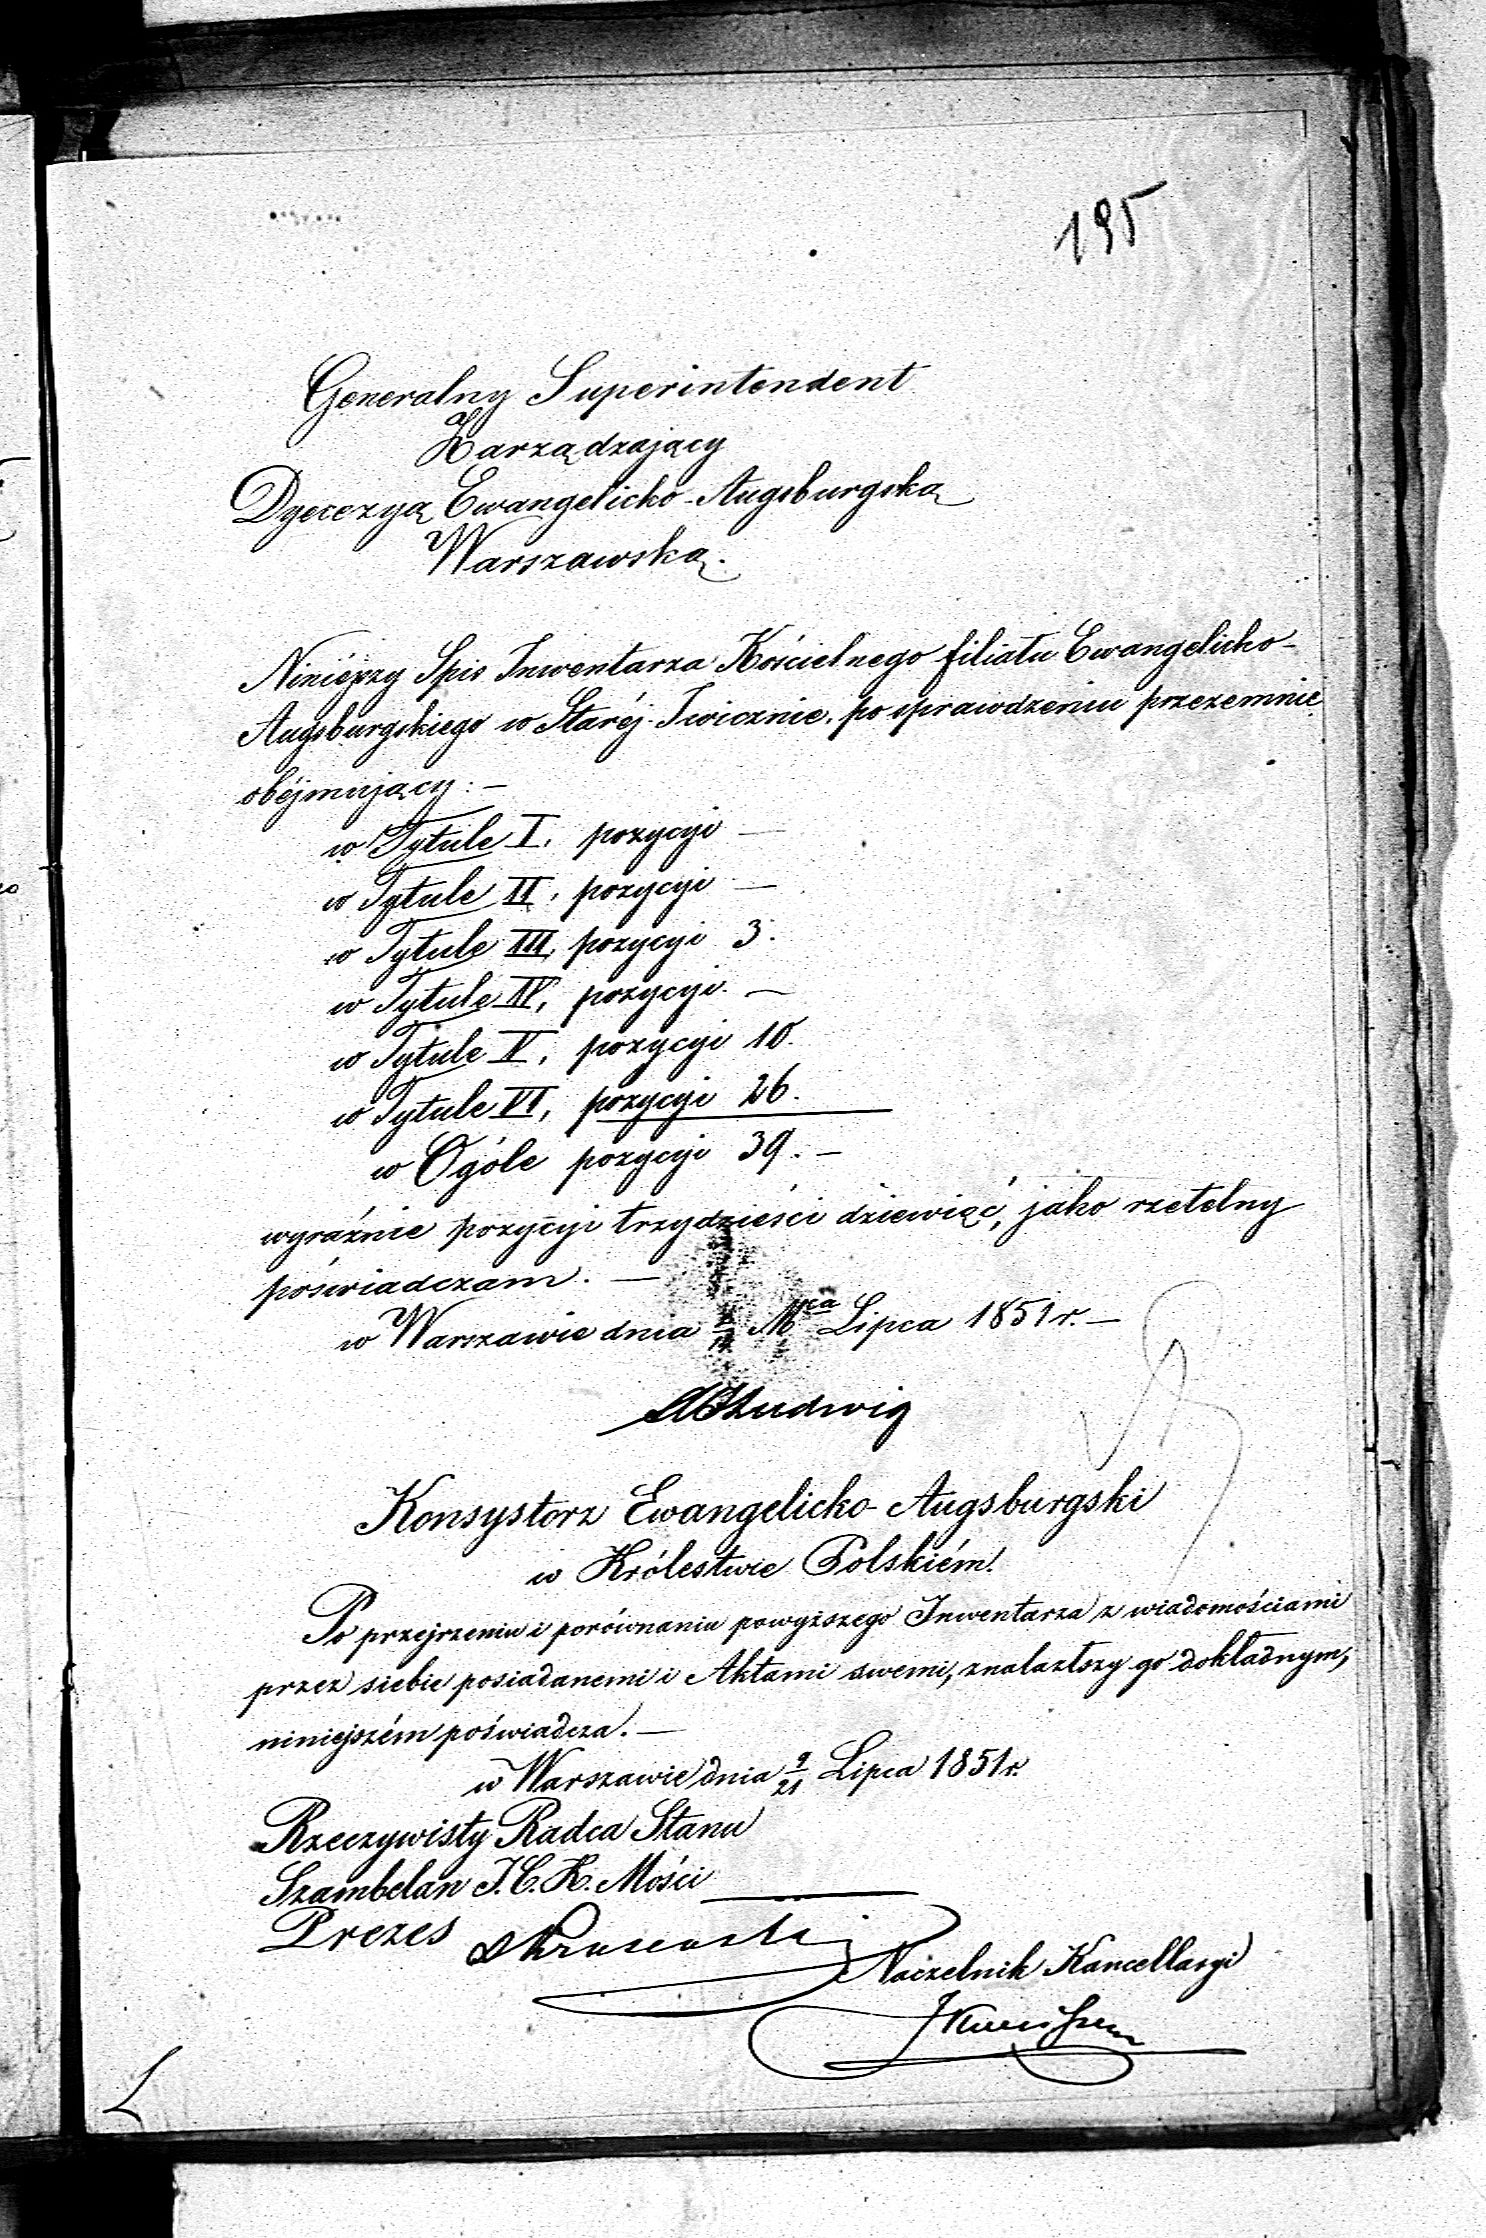 195
Generalny Superintendent
Zarządzający
Dyecezyą Ewangelicko-Augsburgską
Warszawską.
Niniéjszy Spis Inwentarza Kościelnego filiału Ewangelicko-
Augsburgskiego w Staréj Iwicznie, po sprawdzeniu przezemnie
obéjmujący: —
w Tytule I, pozycyi —
w Tytule II, pozycyi —
w Tytule III, pozycyi 3.
w Tytule IV, pozycyi —
w Tytule V, pozycyi 10.
w Tytule VI, pozycyi 26.
w Ogóle pozycyi 39. —
wyraźnie pozycyi trzydzieści dziewięć, jako rzetelny
poświadczam. —
w Warszawie dnia Mca Lipca 1851 r. —
Ludwig
Konsystorz Ewangelicko-Augsburgski
w Królestwie Polskiém.
Po przejrzeniu i porównaniu powyższego Inwentarza z wiadomościami
przez siebie posiadanemi i Aktami swemi, znalazłszy go dokładnym,
niniejszém poświadcza. —
w Warszawie dnia 9/21 Lipca 1851 r.
Rzeczywisty Radca Stanu
Szambelan J. C. K. Mości
Prezes
Naczelnik Kancellaryi